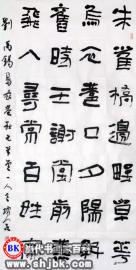 朱雀橋邊野草花
烏衣巷口夕陽斜
舊時王謝堂前燕
飛入尋常百姓家
劉禹錫烏衣巷
BK